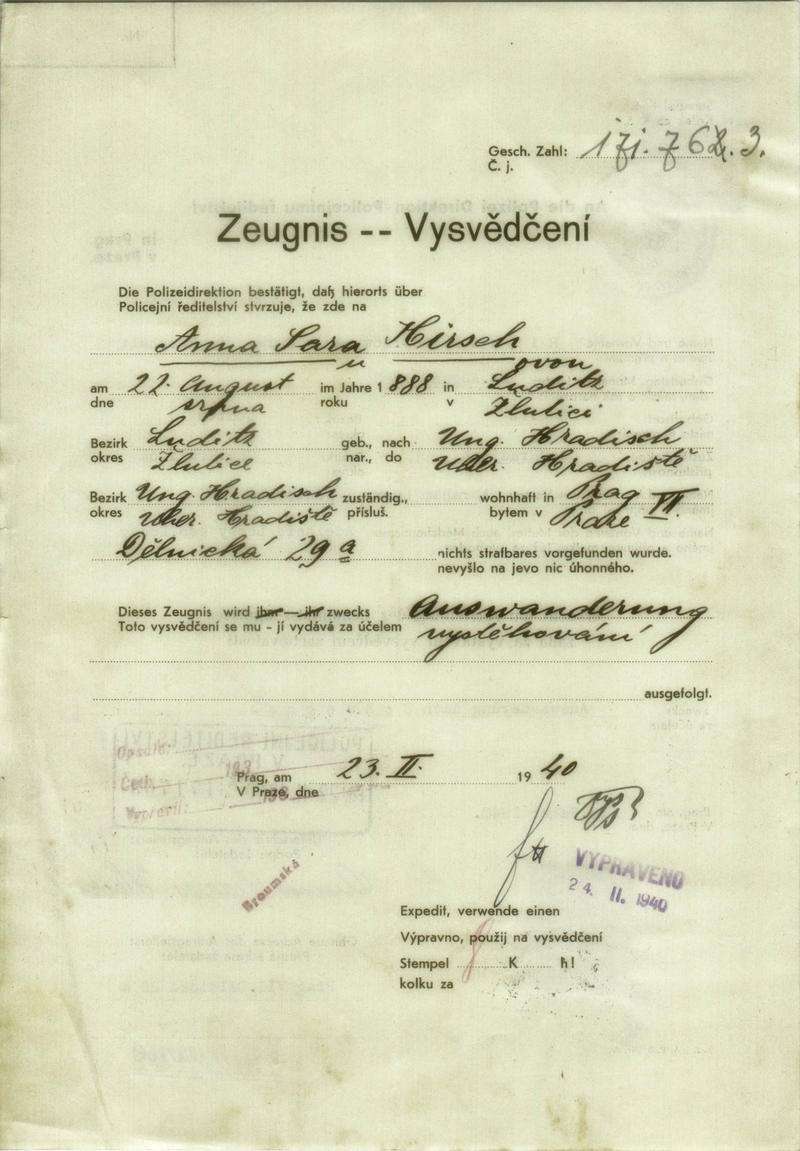 Gesch. Zahl:
Č. j.
Zeugnis -- Vysvědčení
Die Polizeidirektion bestätigt, daß hierorts über
Policejní ředitelství stvrzuje, že zde na
Anna Sara Hirsch
ovou
am 22. August im Jahre 1888 in Luditz
dne srpna roku v Žlutici
Bezirk Luditz geb., nach Ung. Hradisch
okres Žlutice nar., do Uher. Hradiště
Bezirk Ung. Hradisch zuständig., wohnhaft in Prag VII.
okres Uher. Hradiště přísluš. bytem v Praze
Dělnická 29a nichts strafbares vorgefunden wurde.
nevyšlo na jevo nic úhonného.
Dieses Zeugnis wird ihm — ihr zwecks Auswanderung
Toto vysvědčení se mu - jí vydává za účelem vystěhování
ausgefolgt.
Opsáno:
Prag, am 23. II. 1940
V Praze, dne
VYPRAVENO
24. II. 1940
Expedit, verwende einen
Výpravno, použij na vysvědčení
Stempel K h!
kolku za